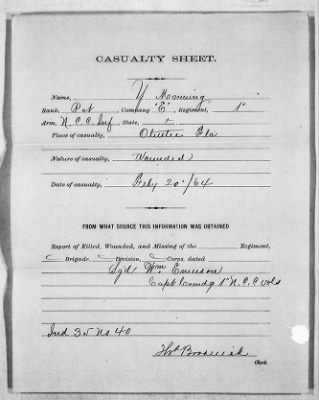 CASUALTY SHEET.
Name, Y Manning
Rank, Pvt, Company "E", Regiment, 1st
Arm, N. C. C. Inf, State,
Place of casualty, Olustee Fla
Nature of casualty, Wounded
Date of casualty, Feby 20"/64
FROM WHAT SOURCE THIS INFORMATION WAS OBTAINED
Report of Killed, Wounded, and Missing of the Regiment,
Brigade, Division, Corps, dated
Sg'd Wm Emerson
Capt Comdg 1st N. C. C Vols
Ind 35 No 40
Clerk.